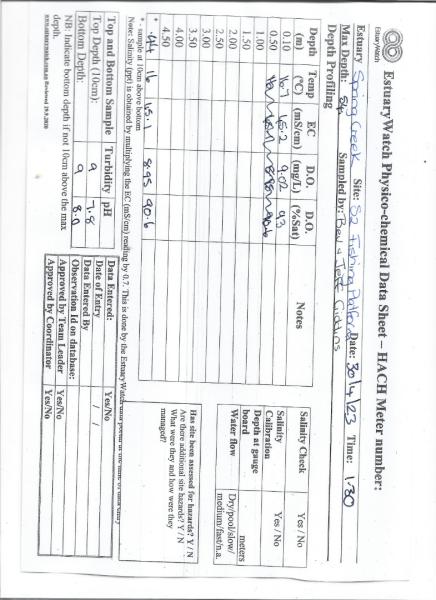 EstuaryWatch
EstuaryWatch Physico-chemical Data Sheet – HACH Meter number:
Estuary Spring Creek Site: S2 Fishing Platform Date: 30/4/23 Time: 1.30
Max Depth: .54 Sampled by: Bev & Jeff Giddins
Depth Profiling
Depth (m) Temp (°C) EC (mS/cm) D.O. (mg/L) D.O. (%Sat) Notes
0.10 16.1 15.2 9.02 93
0.50
1.00
1.50
2.00
2.50
3.00
3.50
4.00
4.50
* .44 16 15.1 8.95 90.6
* - sample at 10cm above bottom
Note: Salinity (ppt) is obtained by multiplying the EC (mS/cm) reading by 0.7. This is done by the EstuaryWatch data portal at the time of data entry
Salinity Check Yes / No
Salinity Calibration Yes / No
Depth at gauge board meters
Water flow Dry/pool/slow/ medium/fast/n.a.
Has site been assessed for hazards? Y / N
Are there additional site hazards? Y / N
What were they and how were they
managed?
Top and Bottom Sample Turbidity pH
Top Depth (10cm): 9 7.8
Bottom Depth: 9 8.0
NB: Indicate bottom depth if not 10cm above the max
depth.
Data Entered: Yes/No
Date of Entry / /
Data Entered By
Observation Id on database:
Approved by Team Leader Yes/No
Approved by Coordinator Yes/No